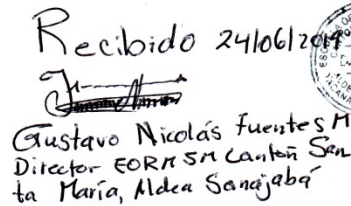 Recibido 24/06/2019
Gustavo Nicolás Fuentes M
Director EORM JM Cantón San
ta María, Aldea Sanajabá